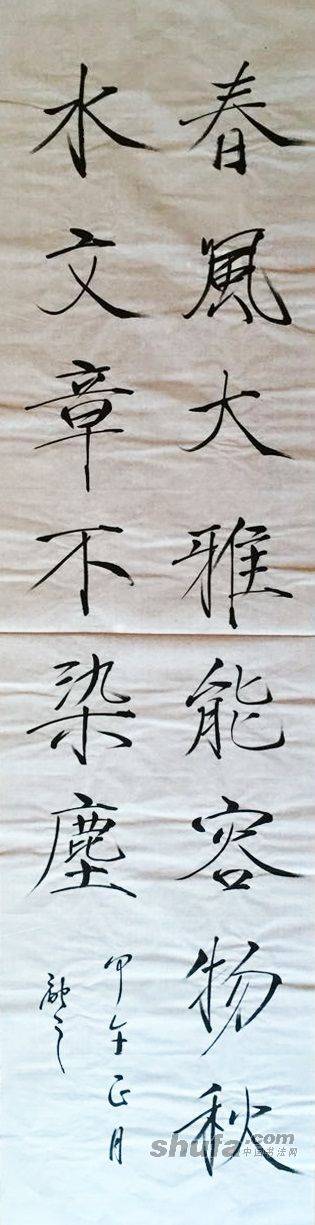 春風大雅能容物秋
水文章不染塵
甲午正月
shufa.com
中国书法网